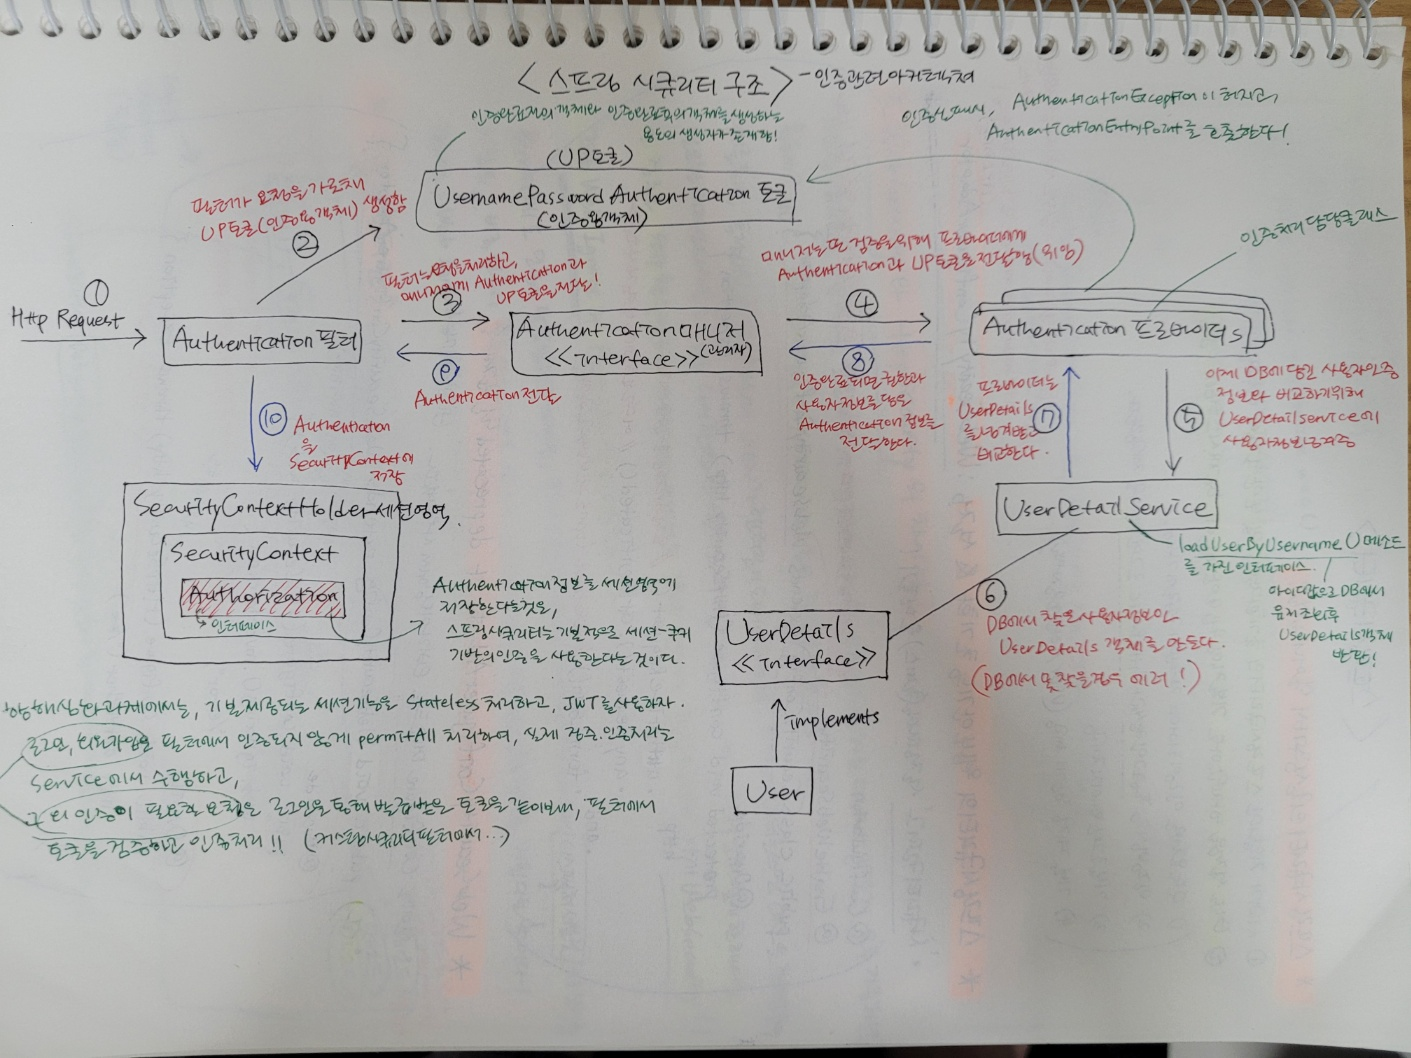 <스프링 시큐리티 구조> - 인증관련아키텍쳐
인증완료전의 객체와 인증완료후의 객체를 생성하는
용도의 생성자가 존재함!
인증실패시, AuthenticationException이 터지고,
AuthenticationEntryPoint를 호출한다!
(UP토큰)
UsernamePasswordAuthentication 토큰
(인증용객체)
필터가 요청을 가로채
UP토큰(인증용객체) 생성함
②
①
Http Request
Authentication 필터
필터는 요청을처리하고,
매니저에게 Authentication과
UP토큰을전달!
③
Authentication매니저
<<interface>> (관리자)
⑨
Authentication전달
매니저는 또 검증을위해 프로바이더에게
Authentication과 UP토큰을전달함(위임)
④
인증처리 담당클래스
Authentication 프로바이더s
⑧
인증완료되면 권한과
사용자정보를 담은
Authentication 정보를
전달한다.
프로바이더는
UserDetails
를넘겨받고
비교한다.
⑦
⑤
이제 DB에 담긴 사용자인증
정보와 비교하기위해
UserDetailService에
사용자정보넘겨줌
⑩
Authentication
을
SecurityContext에
저장
SecurityContextHolder-세션영역
SecurityContext
Authorization
→ 인터페이스
Authentication정보를 세션영역에
저장한다는것은,
스프링시큐리티는 기본적으로 세션-쿠키
기반의인증을 사용한다는것이다.
UserDetailService
loadUserByUsername()메소드
를 가진 인터페이스.
아이디값으로 DB에서
유저조회후
UserDetails객체
반환!
⑥
DB에서 찾은사용자정보인
UserDetails 객체를 만든다.
(DB에서 못찾을경우 에러!)
UserDetails
<<Interface>>
implements
User
항해심화과제에서는, 기본제공되는 세션기능을 Stateless 처리하고, JWT를사용하자.
로그인, 회원가입은 필터에서 인증되지 않게 permitAll 처리하여, 실제 검증.인증처리는
Service에서 수행하고,
그외 인증이 필요한 요청은 로그인을 통해 발급받은 토큰을 같이보내, 필터에서
토큰을 검증하고 인증처리!! (커스텀시큐리티필터에서...)